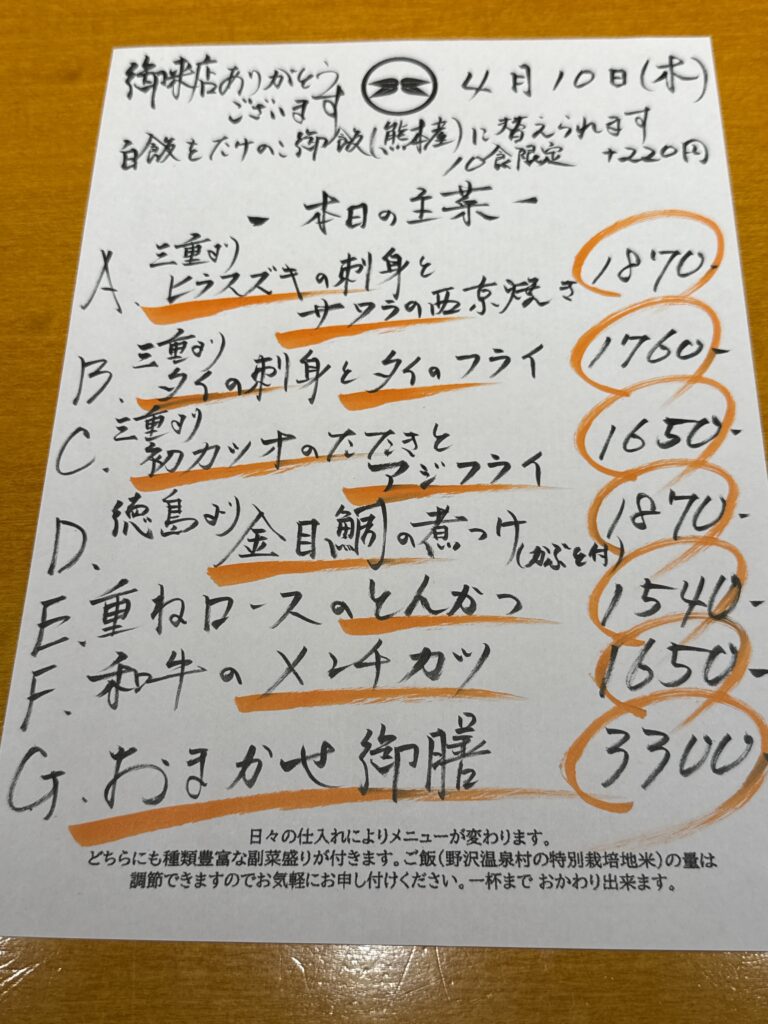 御来店ありがとう
ございます
4月10日(木)
白飯をたけのこ御飯(熊本産)に替えられます
10食限定 +220円
- 本日の主菜 -
A. 三重より
ヒラスズキの刺身と
サワラの西京焼き 1870-
B. 三重より
タイの刺身とタイのフライ 1760-
C. 三重より
初カツオのたたきと
アジフライ 1650-
D. 徳島より 金目鯛の煮つけ(かぶと付) 1870-
E. 重ねロースのとんかつ 1540-
F. 和牛のメンチカツ 1650-
G. おまかせ御膳 3300-
日々の仕入れによりメニューが変わります。
どちらにも種類豊富な副菜盛りが付きます。ご飯(野沢温泉村の特別栽培地米)の量は
調節できますのでお気軽にお申し付けください。一杯まで おかわり出来ます。